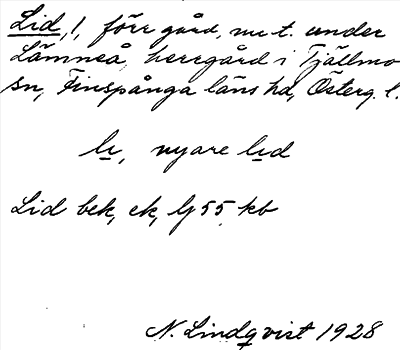 Lid, l, förr gård, nu t. under
Lämneå, herrgård i Tjällmo
sn, Finspånga läns hd, Österg. l.
li, nyare lid
Lid bek, ek, lj 55 kb
N. Lindqvist 1928